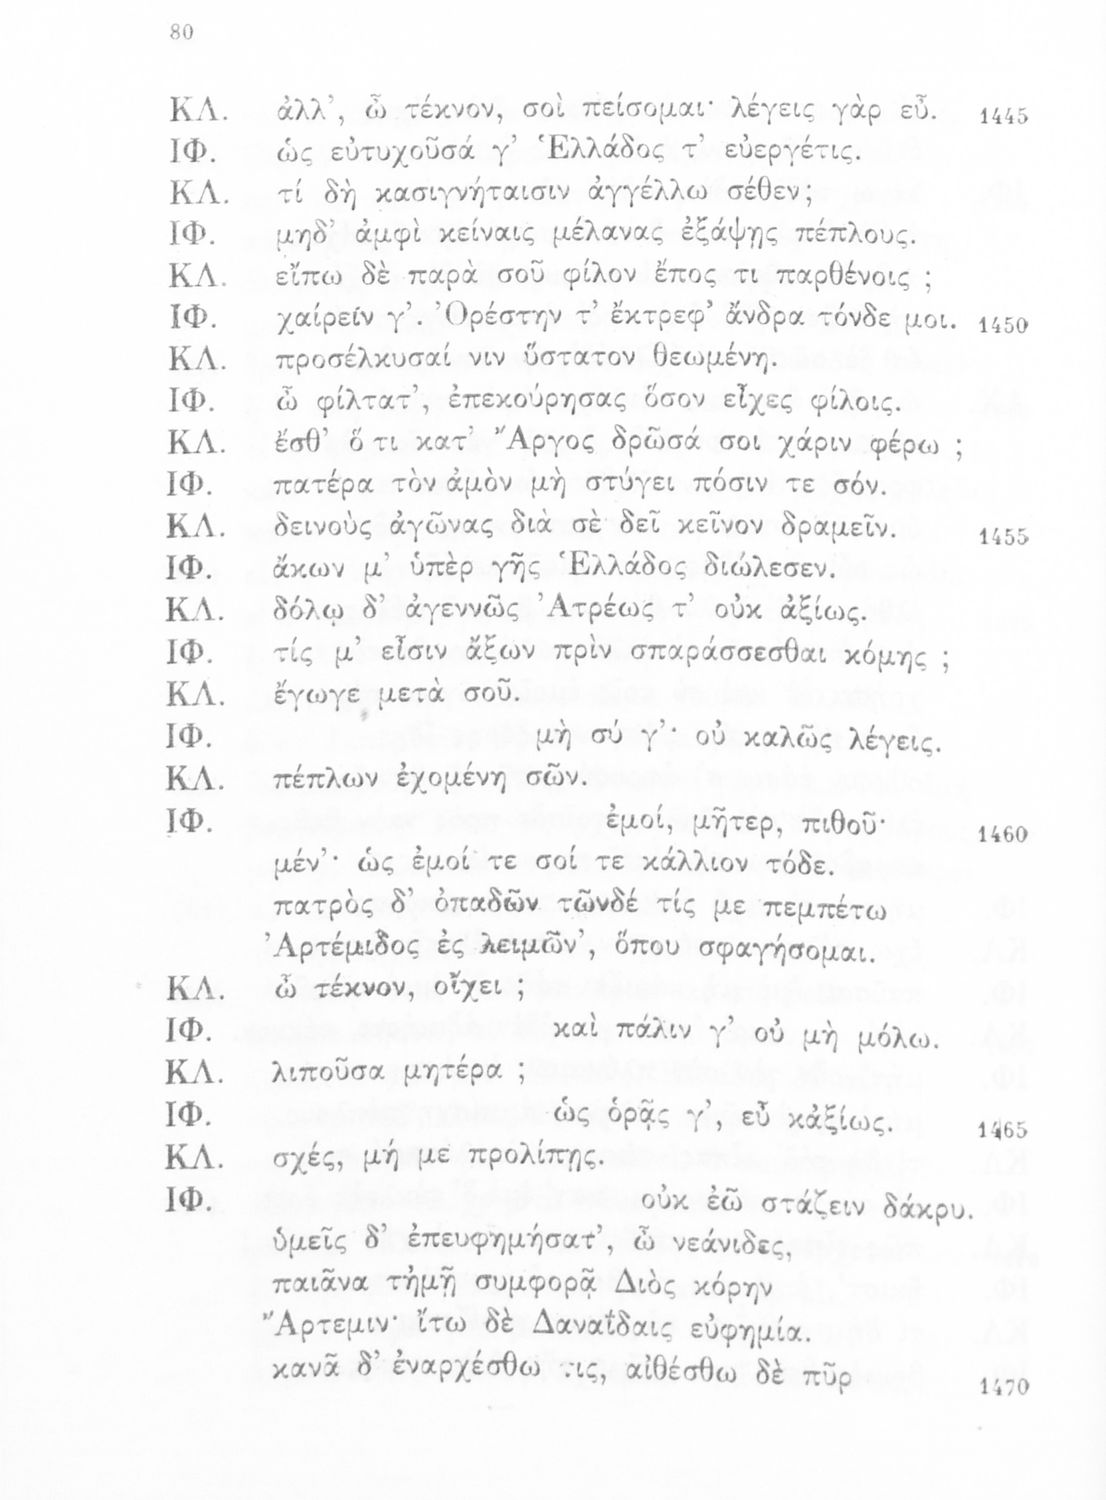 80
ΚΛ. ἀλλ’, ὦ τέκνον, σοὶ πείσομαι· λέγεις γὰρ εὖ. 1445
ΙΦ. ὡς εὐτυχοῦσά γ’ Ἑλλάδος τ’ εὐεργέτις.
ΚΛ. τί δὴ κασιγνήταισιν ἀγγέλλω σέθεν;
ΙΦ. μηδ’ ἀμφὶ κείναις μέλανας ἐξάψῃς πέπλους.
ΚΛ. εἴπω δὲ παρὰ σοῦ φίλον ἔπος τι παρθένοις ;
ΙΦ. χαίρειν γ’. Ὀρέστην τ’ ἔκτρεφ’ ἄνδρα τόνδε μοι. 1450
ΚΛ. προσέλκυσαί νιν ὕστατον θεωμένη.
ΙΦ. ὦ φίλτατ’, ἐπεκούρησας ὅσον εἶχες φίλοις.
ΚΛ. ἔσθ’ ὅ τι κατ’ Ἄργος δρῶσά σοι χάριν φέρω ;
ΙΦ. πατέρα τὸν ἀμὸν μὴ στύγει πόσιν τε σόν.
ΚΛ. δεινοὺς ἀγῶνας διὰ σὲ δεῖ κεῖνον δραμεῖν. 1455
ΙΦ. ἄκων μ’ ὑπὲρ γῆς Ἑλλάδος διώλεσεν.
ΚΛ. δόλῳ δ’ ἀγεννῶς Ἀτρέως τ’ οὐκ ἀξίως.
ΙΦ. τίς μ’ εἶσιν ἄξων πρὶν σπαράσσεσθαι κόμης ;
ΚΛ. ἔγωγε μετὰ σοῦ.
ΙΦ. μὴ σύ γ’· οὐ καλῶς λέγεις.
ΚΛ. πέπλων ἐχομένη σῶν.
ΙΦ. ἐμοί, μῆτερ, πιθοῦ· 1460
μέν’· ὡς ἐμοί τε σοί τε κάλλιον τόδε.
πατρὸς δ’ ὀπαδῶν τῶνδέ τίς με πεμπέτω
Ἀρτέμιδος ἐς λειμῶν’, ὅπου σφαγήσομαι.
ΚΛ. ὦ τέκνον, οἴχει ;
ΙΦ. καὶ πάλιν γ’ οὐ μὴ μόλω.
ΚΛ. λιποῦσα μητέρα ;
ΙΦ. ὡς ὁρᾷς γ’, εὖ κἀξίως. 1465
ΚΛ. σχές, μή με προλίπῃς.
ΙΦ. οὐκ ἐῶ στάζειν δάκρυ.
ὑμεῖς δ’ ἐπευφημήσατ’, ὦ νεάνιδες,
παιᾶνα τἠμῇ συμφορᾷ Διὸς κόρην
Ἄρτεμιν· ἴτω δὲ Δαναΐδαις εὐφημία.
κανᾶ δ’ ἐναρχέσθω τις, αἰθέσθω δὲ πῦρ 1470